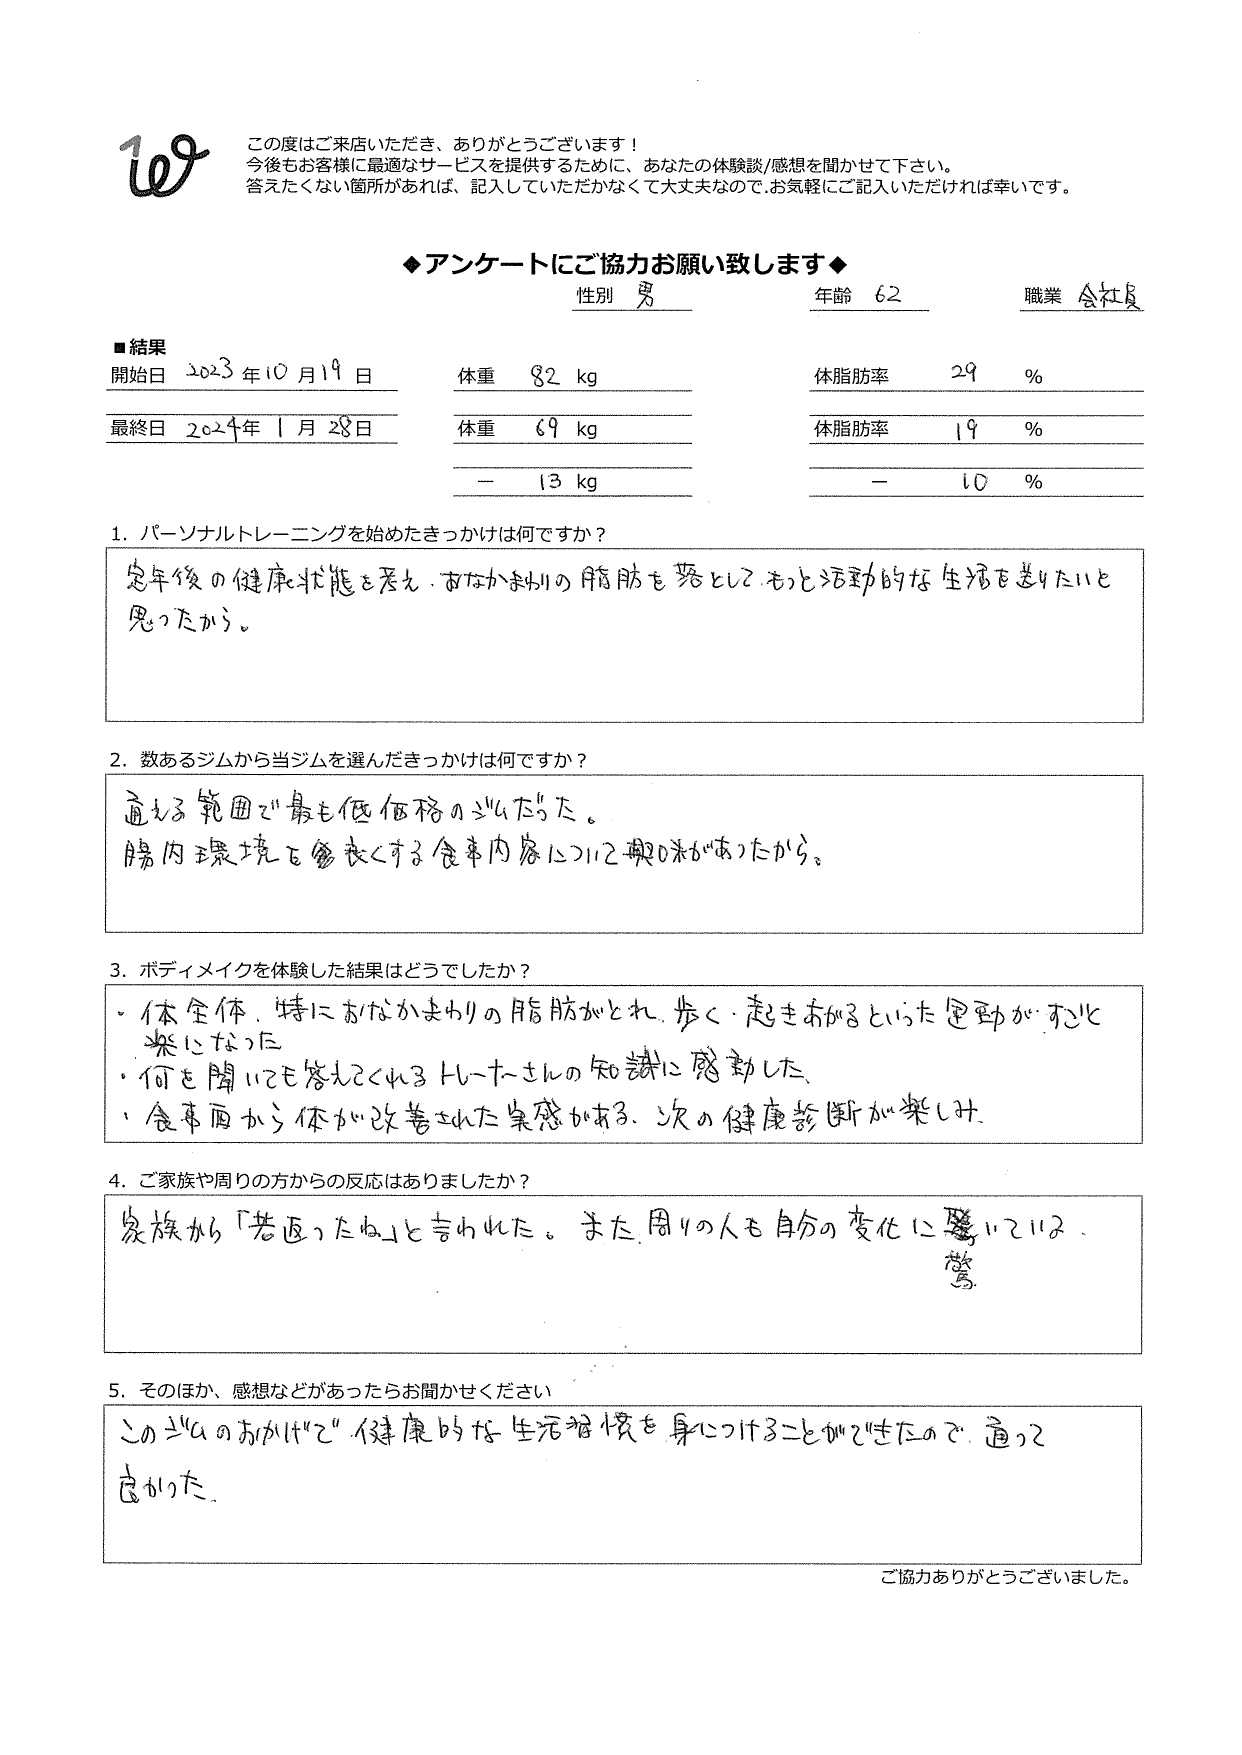 この度はご来店いただき、ありがとうございます！
今後もお客様に最適なサービスを提供するために、あなたの体験談/感想を聞かせて下さい。
答えたくない箇所があれば、記入していただかなくて大丈夫なので、お気軽にご記入いただければ幸いです。
◆アンケートにご協力お願い致します◆
性別 男 年齢 62 職業 会社員
■結果
開始日 2023年10月19日 体重 82 kg 体脂肪率 29 %
最終日 2024年1月28日 体重 69 kg 体脂肪率 19 %
－ 13 kg － 10 %
1. パーソナルトレーニングを始めたきっかけは何ですか？
定年後の健康状態を考え、おなかまわりの脂肪を落として、もっと活動的な生活を送りたいと
思ったから。
2. 数あるジムから当ジムを選んだきっかけは何ですか？
通える範囲で最も低価格のジムだった。
腸内環境を良くする食事内容について興味があったから。
3. ボディメイクを体験した結果はどうでしたか？
・体全体、特におなかまわりの脂肪がとれ、歩く・起きあがるといった運動がすごく
楽になった
・何を聞いても答えてくれるトレーナーさんの知識に感動した、
・食事面から体が改善された実感がある、次の健康診断が楽しみ、
4. ご家族や周りの方からの反応はありましたか？
家族から「若返ったね」と言われた。また、周りの人も自分の変化に驚いている、
驚
5. そのほか、感想などがあったらお聞かせください
このジムのおかげで、健康的な生活習慣を身につけることができたので、通って
良かった、
ご協力ありがとうございました。